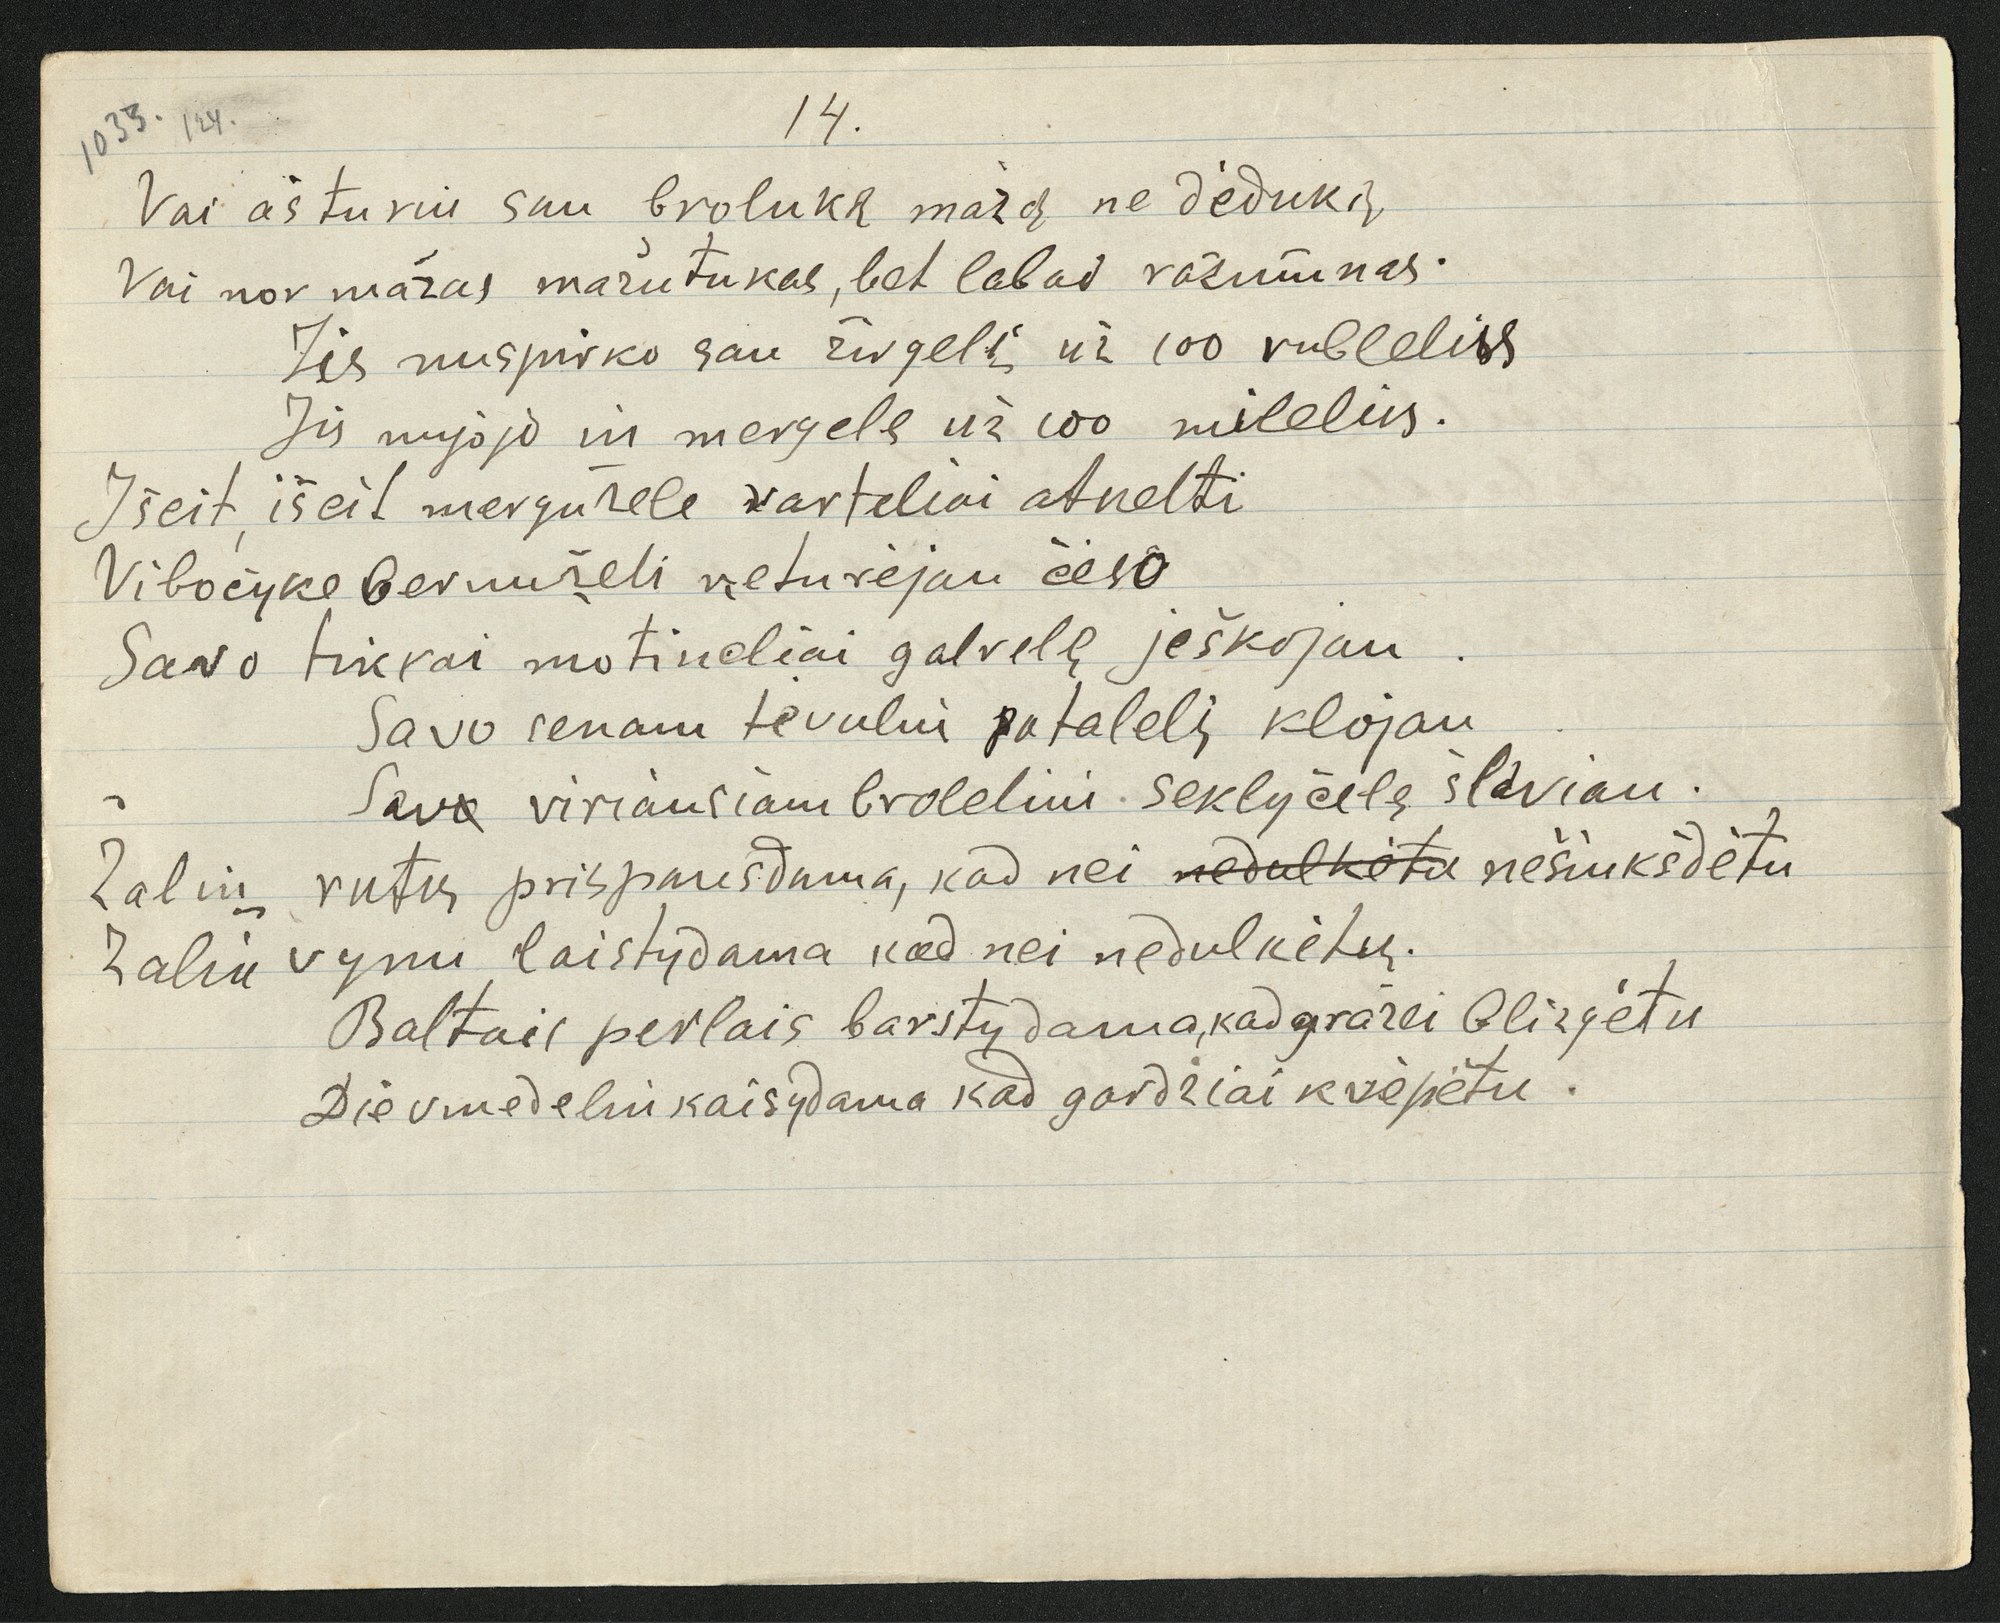 1033. 124.
14.
Vai aš turiu sau broluką mažą ne dėduką
Vai nor mažas mažutukas, bet labai razumnas.
Jis nuspirko sau žirgelį už 100 rubleliss
Jis nujojo in mergelę už 100 milelius.
Išeit, išeit mergužele varteliai atkelti
Vibočyke bernuželi neturėjau čėso
Savo tikrai motineliai galvelę ješkojau.
Savo senam tėvului patalelį klojau
Savo viriausiam broleliui seklyčelę šlaviau.
Žalių rutų prispausdama, kad nei nedulkėtu nešiukšdėtu
Žaliu vynu laistydama kad nei nedulkėtų.
Baltais perlais barstydama, kad gražei blizgėtu
Dievmedeliu kaisydama kad gardžiai kvėpėtu.